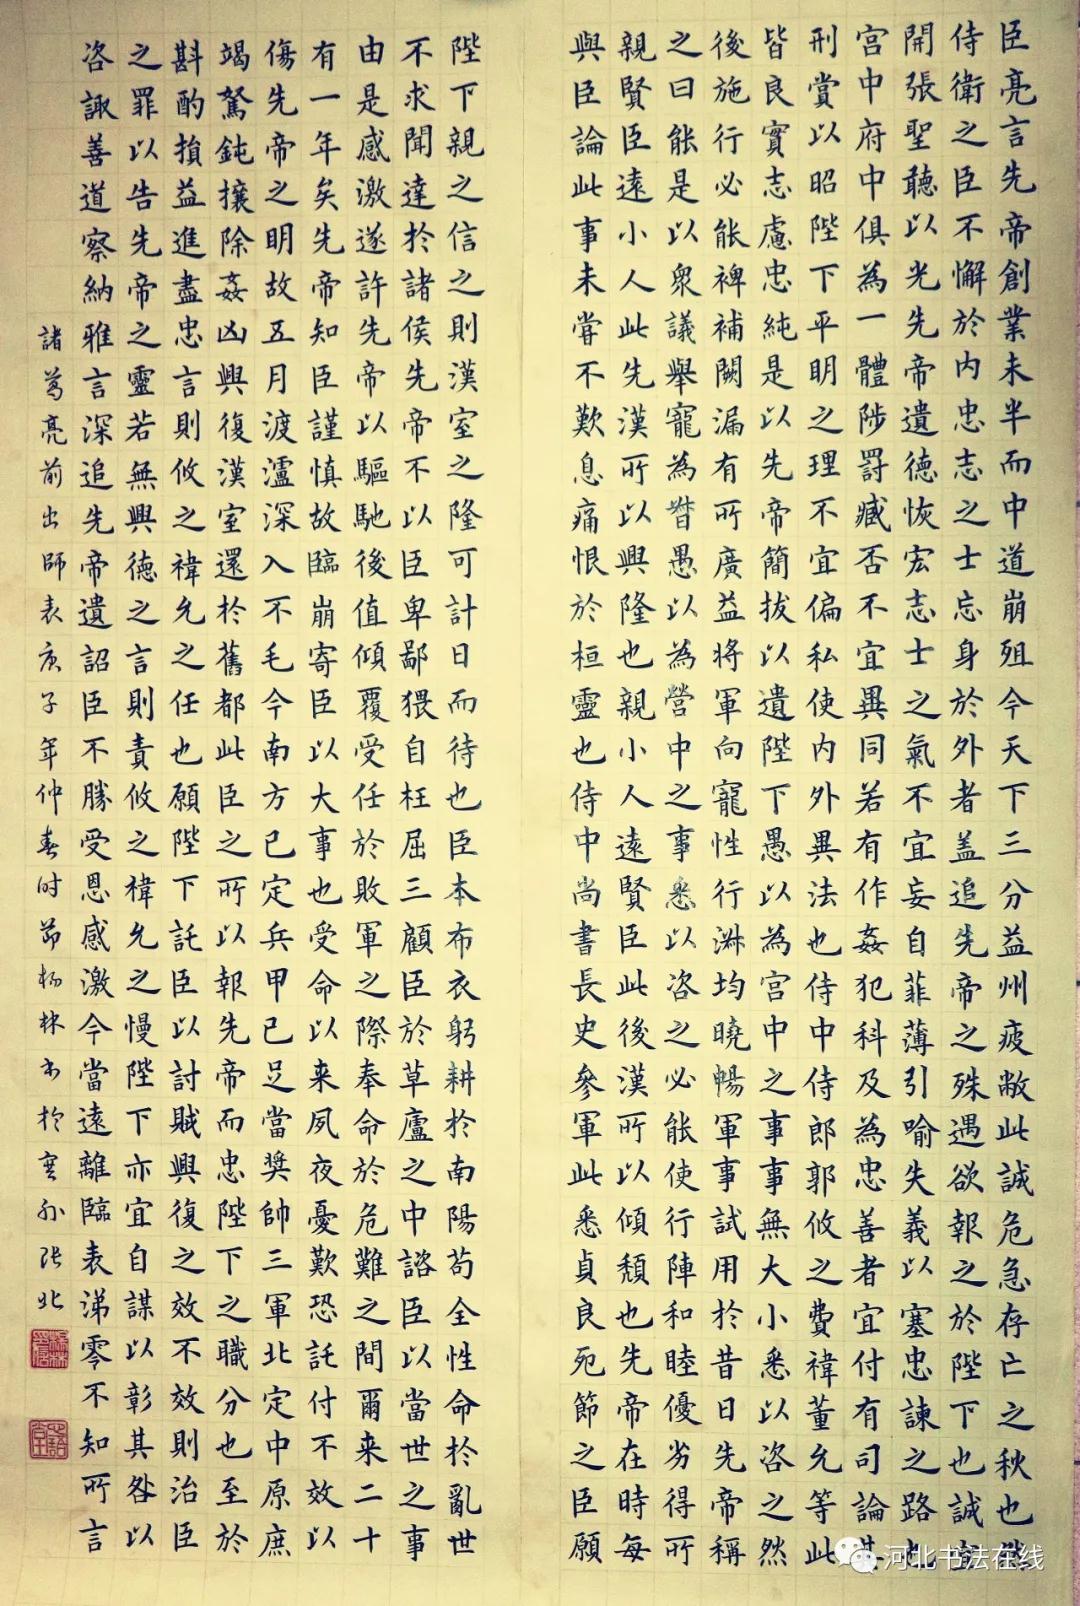 臣亮言先帝創業未半而中道崩殂今天下三分益州疲敝此誠危急存亡之秋也然
侍衛之臣不懈於內忠志之士忘身於外者盖追先帝之殊遇欲報之於陛下也誠宜
開張聖聽以光先帝遺德恢宏志士之氣不宜妄自菲薄引喻失義以塞忠諫之路也
宮中府中俱為一體陟罰臧否不宜異同若有作姦犯科及為忠善者宜付有司論其
刑賞以昭陛下平明之理不宜偏私使內外異法也侍中侍郎郭攸之費禕董允等此
皆良實志慮忠純是以先帝簡拔以遺陛下愚以為宮中之事事無大小悉以咨之然
後施行必能裨補闕漏有所廣益將軍向寵性行淑均曉暢軍事試用於昔日先帝稱
之曰能是以眾議舉寵為督愚以為營中之事悉以咨之必能使行陣和睦優劣得所
親賢臣遠小人此先漢所以興隆也親小人遠賢臣此後漢所以傾頹也先帝在時每
與臣論此事未嘗不歎息痛恨於桓靈也侍中尚書長史參軍此悉貞良死節之臣願
陛下親之信之則漢室之隆可計日而待也臣本布衣躬耕於南陽苟全性命於亂世
不求聞達於諸侯先帝不以臣卑鄙猥自枉屈三顧臣於草廬之中諮臣以當世之事
由是感激遂許先帝以驅馳後值傾覆受任於敗軍之際奉命於危難之間爾来二十
有一年矣先帝知臣謹慎故臨崩寄臣以大事也受命以来夙夜憂歎恐託付不效以
傷先帝之明故五月渡瀘深入不毛今南方已定兵甲已足當獎帥三軍北定中原庶
竭駑鈍攘除姦凶興復漢室還於舊都此臣之所以報先帝而忠陛下之職分也至於
斟酌損益進盡忠言則攸之禕允之任也願陛下託臣以討賊興復之效不效則治臣
之罪以告先帝之靈若無興德之言則責攸之禕允之慢陛下亦宜自謀以彰其咎以
咨諏善道察納雅言深追先帝遺詔臣不勝受恩感激今當遠離臨表涕零不知所言
諸葛亮前出師表庚子年仲春时节杨林书於塞外张北
河北书法在线